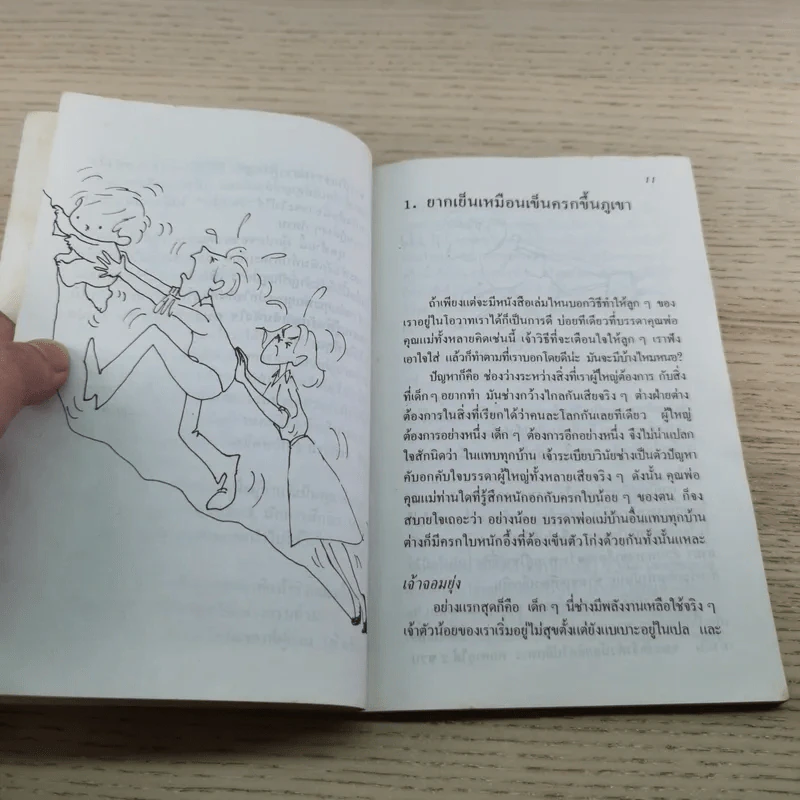 11
1. ยากเย็นเหมือนเข็นครกขึ้นภูเขา
ถ้าเพียงแต่จะมีหนังสือเล่มไหนบอกวิธีทำให้ลูก ๆ ของ
เราอยู่ในโอวาทเราได้ก็เป็นการดี บ่อยทีเดียวที่บรรดาคุณพ่อ
คุณแม่ทั้งหลายคิดเช่นนี้ เจ้าวิธีที่จะเตือนใจให้ลูก ๆ เราฟัง
เอาใจใส่ แล้วก็ทำตามที่เราบอกโดยดีน่ะ มันจะมีบ้างไหมหนอ?
ปัญหาก็คือ ช่องว่างระหว่างสิ่งที่เราผู้ใหญ่ต้องการ กับสิ่ง
ที่เด็กๆ อยากทำ มันช่างกว้างไกลกันเสียจริง ๆ ต่างฝ่ายต่าง
ต้องการในสิ่งที่เรียกได้ว่าคนละโลกกันเลยทีเดียว ผู้ใหญ่
ต้องการอย่างหนึ่ง เด็ก ๆ ต้องการอีกอย่างหนึ่ง จึงไม่น่าแปลก
ใจสักนิดว่า ในแทบทุกบ้าน เจ้าระเบียบวินัยช่างเป็นตัวปัญหา
คับอกคับใจบรรดาผู้ใหญ่ทั้งหลายเสียจริง ๆ ดังนั้น คุณพ่อ
คุณแม่ท่านใดที่รู้สึกหนักอกกับครกใบน้อย ๆ ของตน ก็จง
สบายใจเถอะว่า อย่างน้อย บรรดาพ่อแม่บ้านอื่นแทบทุกบ้าน
ต่างก็มีครกใบหนักอึ้งที่ต้องเข็นตัวโก่งด้วยกันทั้งนั้นแหละ
เจ้าจอมยุ่ง
อย่างแรกสุดก็คือ เด็ก ๆ นี่ช่างมีพลังงานเหลือใช้จริง ๆ
เจ้าตัวน้อยของเราเริ่มอยู่ไม่สุขตั้งแต่ยังแบเบาะอยู่ในเปล และ